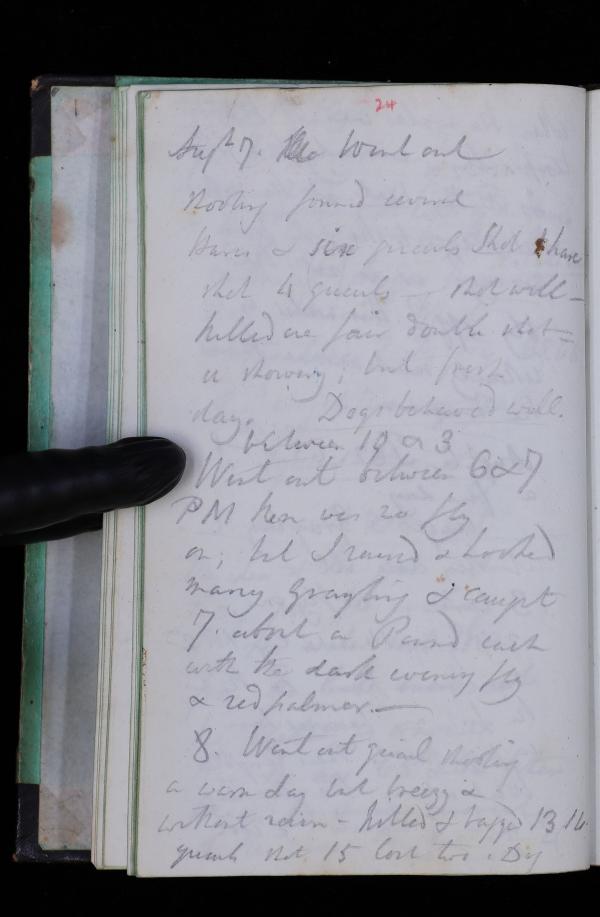 24
Sept 7. Went out
shooting found several
Hares & six quails Shot 1 hare
shot 4 quails — shot well —
killed one fair double shot —
a showery; but fresh
day. Dogs behaved well.
between 10 & 3
Went out between 6 & 7
PM there was no fly
on; but I raised & hooked
many Grayling & caught
7. about a Pound each
with the dark evening fly
& red palmer. —
8. Went out quail shooting
a warm day but breezy &
without rain - killed & bagged 13 14
quails shot 15 lost two. Dy